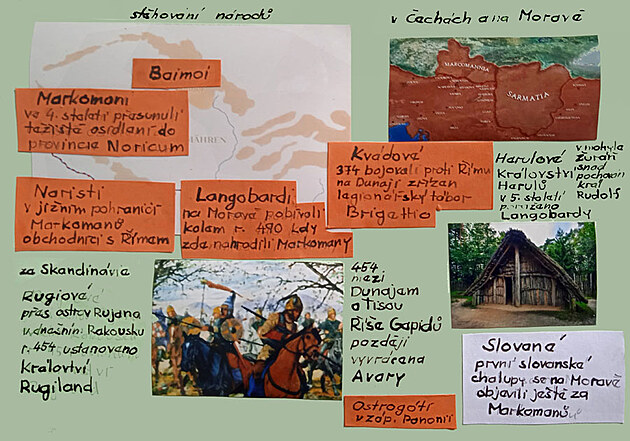 stěhování národů
v Čechách a na Moravě
Baimoi
Markomani
ve 4. století přesunuli
těžiště osídlení do
provincie Noricum
MÄHREN
MARCOMANNIA
SARMATIA
Naristi
v jižním pohraničí
Markomanů
obchodníci s Římem
Langobardi
na Moravě pobývali
kolem r. 490 kdy
zde nahradili Markomany
Kvádové
374 bojovali proti Římu
na Dunaji zřízen
legionářský tábor
Brigettio
Herulové
Království
Herulů
v 5. století
poraženo
Langobardy
v mohyle
Žuráň
snad
pochován
král
Rudolf
ze Skandinávie
Rugiové
přes ostrov Rujana
v dnešním Rakousku
r. 454 ustanoveno
Království
Rugiland
454
mezi
Dunajem
a Tisou
Říše Gepidů
později
vyvrácena
Avary
Ostrogóti
v záp. Panonii
Slované
první slovanské
chalupy se na Moravě
objevili ještě za
Markomanů